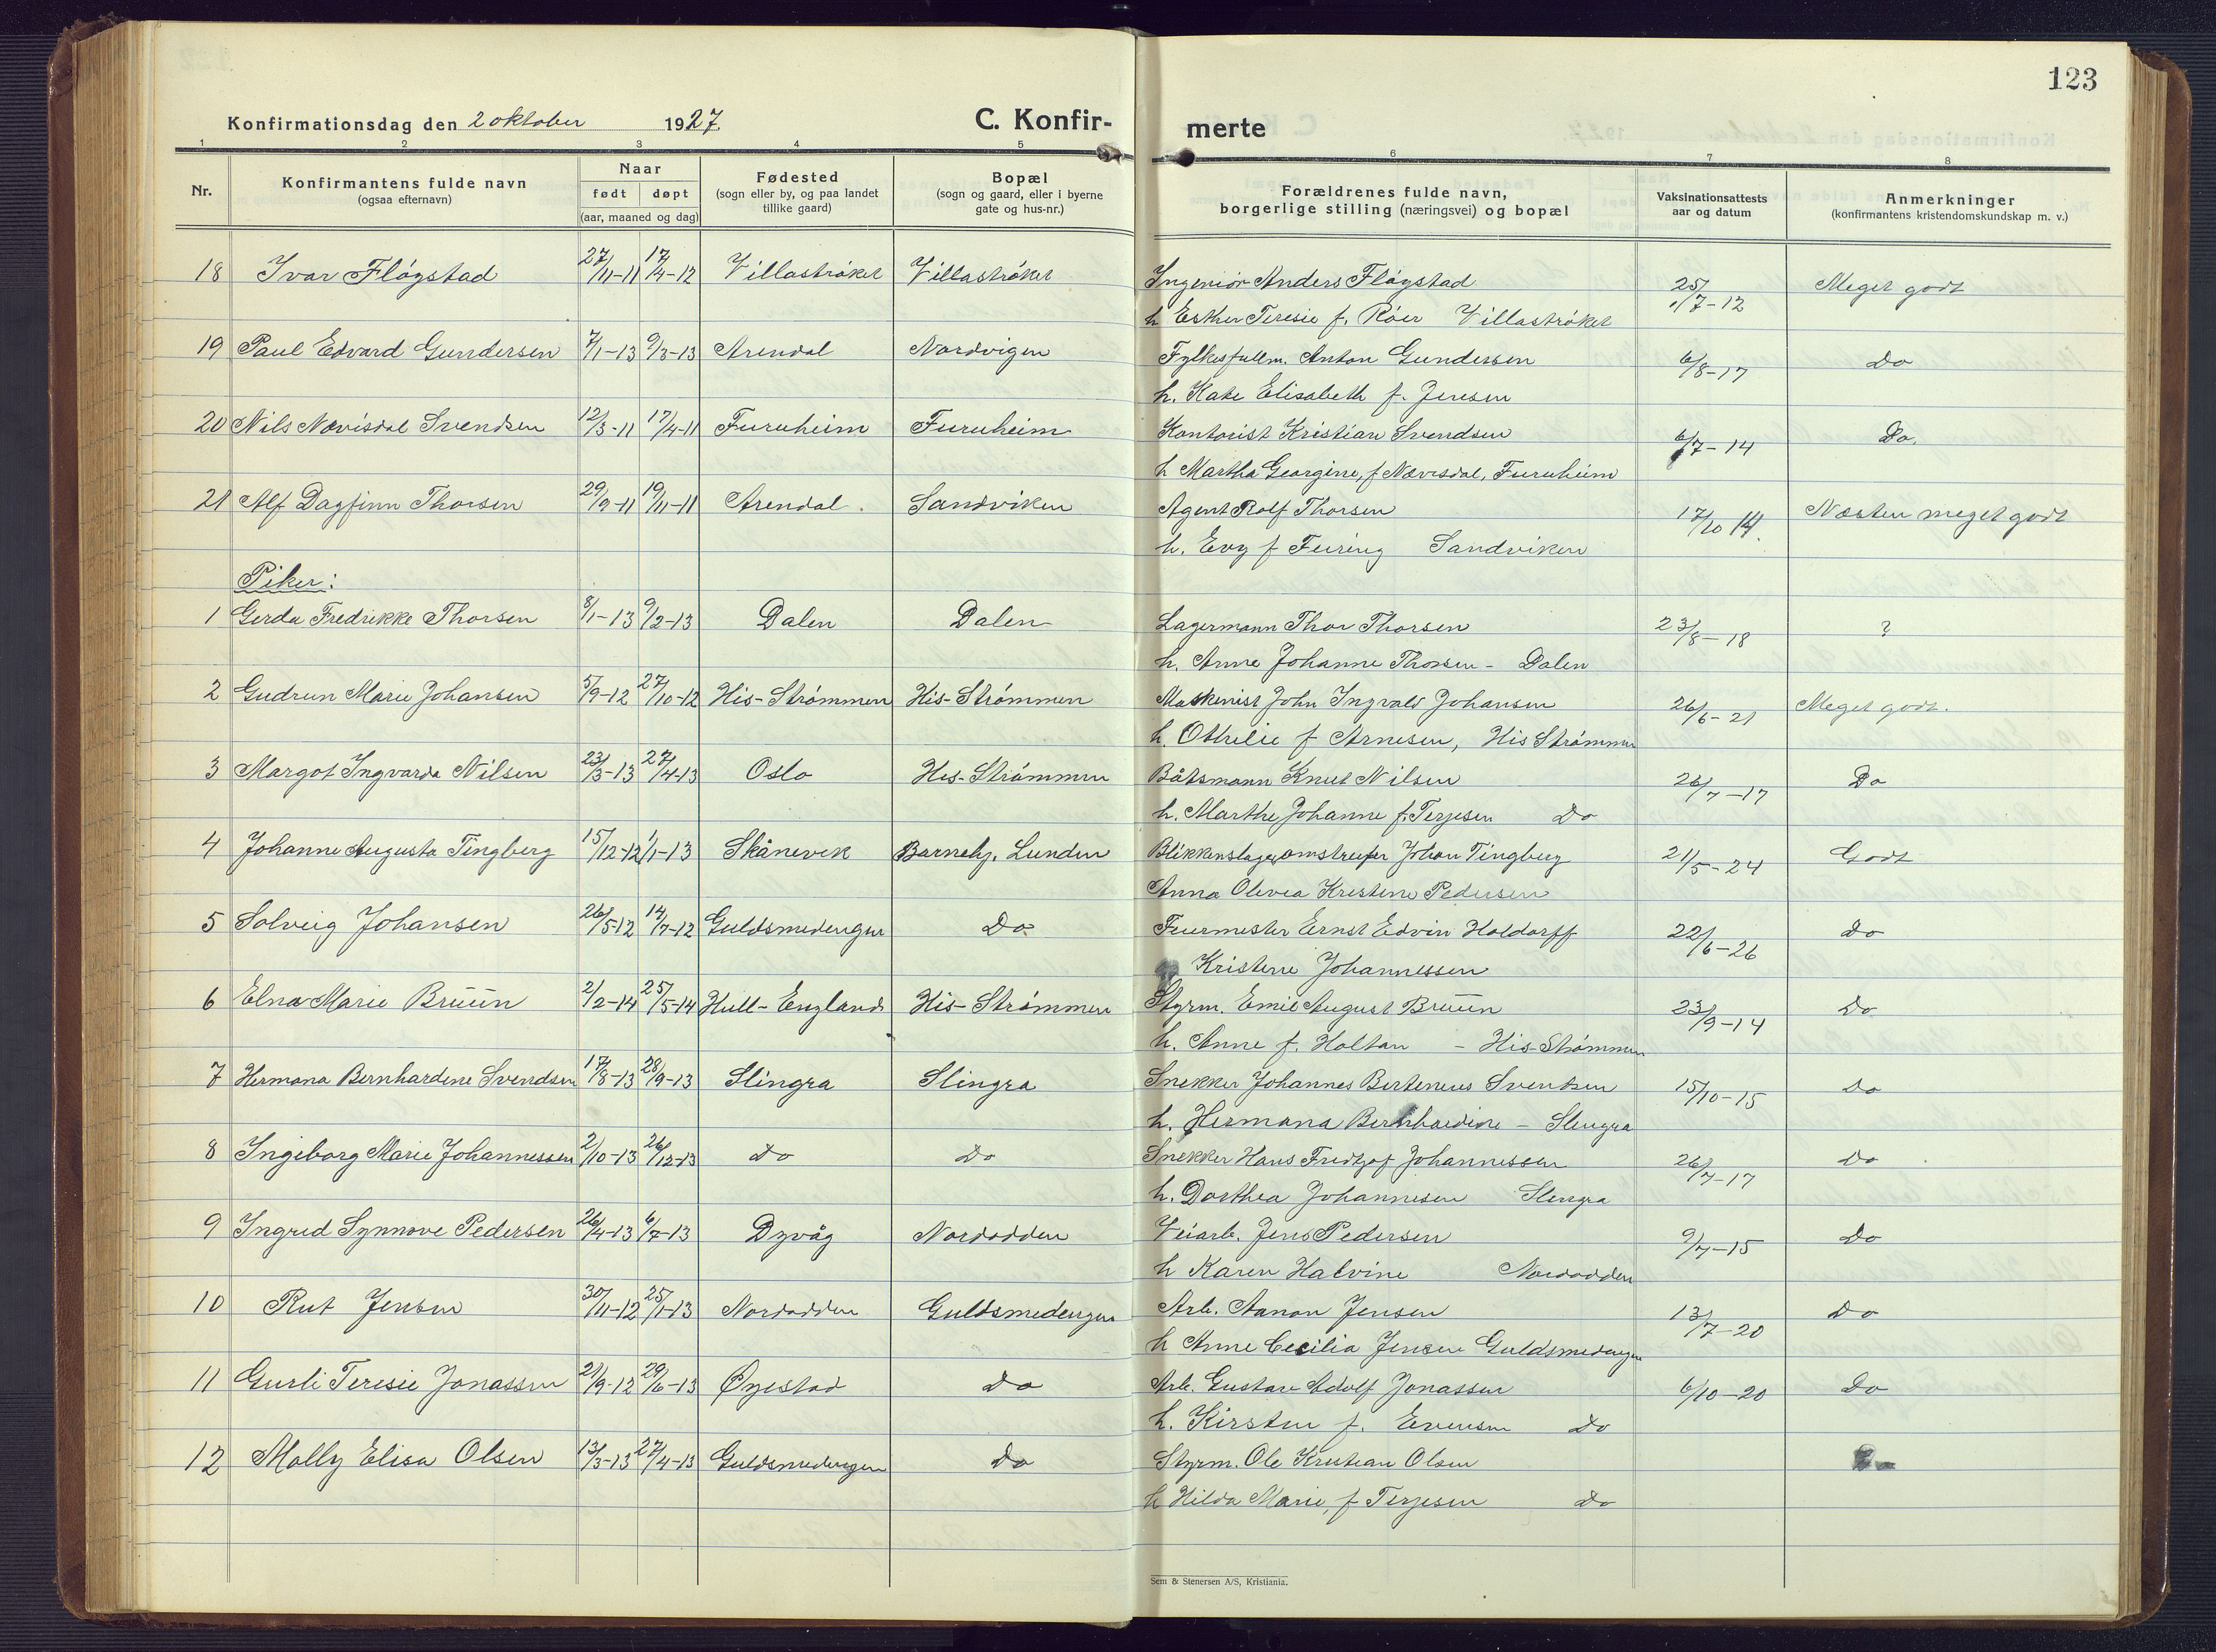 123
Konfirmationsdag den 2 oktober 1927
C. Konfir-
merte
1 2 3 4 5 6 7 8
Nr.
Konfirmantens fulde navn
(ogsaa efternavn)
Naar
født døpt
(aar, maaned og dag)
Fødested
(sogn eller by, og paa landet
tillike gaard)
Bopæl
(sogn og gaard, eller i byerne
gate og hus-nr.)
Forældrenes fulde navn,
borgerlige stilling (næringsvei) og bopæl
Vaksinationsattests
aar og datum
Anmerkninger
(konfirmantens kristendomskundskap m. v.)
18 Ivar Fløystad 27/11-11 17/4-12 Villastrøket Villastrøket Ingeniør Anders Fløystad 25/7-12 Meget godt
h Esther Teresie f. Röer Villastrøket
19 Paul Edvard Gundersen 7/1-13 9/3-13 Arendal Nordvigen Fylkesfullm. Anton Gundersen 6/8-17 Do
h. Kate Elisabeth f. Jensen
20 Nils Nævisdal Svendsen 12/3-11 17/4-11 Furuheim Furuheim Kontorist Kristian Svendsen 6/7-14 Do.
h Martha Georgine, f Nævesdal, Furuheim
21 Alf Dagfinn Thorsen 29/9-11 19/11-11 Arendal. Sandviken Agent Rolf Thorsen 17/10 14. Næsten meget godt
h. Evy f Feiring Sandviken
Piker:
1 Gerda Fredrikke Thorsen 8/1-13 9/2-13 Dalen Dalen Lagermann Thor Thorsen 23/8-18 ?
h. Anne Johanne Thorsen - Dalen
2 Gudrun Marie Johansen 5/9-12 27/10-12 His-Strømmen His-Strømmen Maskenist John Ingvald Johansen 26/6-21 Meget godt.
h. Othelie f Arnesen, His Strømmen
3 Margot Ingvarda Nilsen 23/3-13 27/4-13 Oslo His-Strømmen Båtsmann Knut Nilsen 26/7-17 Do
h. Marthe Johanne f. Terjesen Do
4 Johanne Augusta Tingberg 15/12-12 1/1-13 Skånevik Barnehj. Lunden Blikkenslager omstreifer Johan Tingberg 21/5-24 Godt
Anna Olevea Kristine Pedersen
5 Solveig Johansen 26/5-12 14/7-12 Guldsmedengen Do. Fyrmester Ernst Edvin Holdorff 22/6-26 Do
Kristine Johannessen
6 Elna Marie Brüün 2/2-14 25/5-14 Hull-England His-Strømmen Styrm. Emil August Brüün 23/9-14 Do
h. Anne f. Holtan - His-Strømmen
7 Hermana Bernhardine Svendsen 17/8-13 28/9-13 Slingra Slingra Snekker Johannes Bertenius Svendsen 15/10-15 Do
h. Hermana Bernhardine - Slingra
8 Ingeborg Marie Johannessen 2/10-13 26/12-13 do Do Snekker Hans Fredtjof Johannessen 26/7-17 Do
h. Dorthea Johannesen Slingra
9 Ingrid Synnøve Pedersen 26/4-13 6/7-13 Dyvåg Nordodden Veiarb. Jens Pedersen 9/7-15 Do
h Karen Halvine Nordodden
10 Rut Jensen 30/11-12 25/1-13 Nordodden Guldsmedengen Arb. Aanon Jensen 13/7-20 Do
h Anne Cecilia Jensen Guldsmedengen
11 Gurli Teresie Jonassen 21/9-12 29/6-13 Øyestad Do Arb. Gustav Adolf Jonassen 6/10-20 Do
h. Kirsten f. Evensen Do
12 Molly Elisa Olsen 13/3-13 27/4-13 Guldsmedengen Do Styrm. Ole Kristian Olsen
h Hilda Marie, f Terjesen Do
Sem & Stenersen A/S, Kristiania.